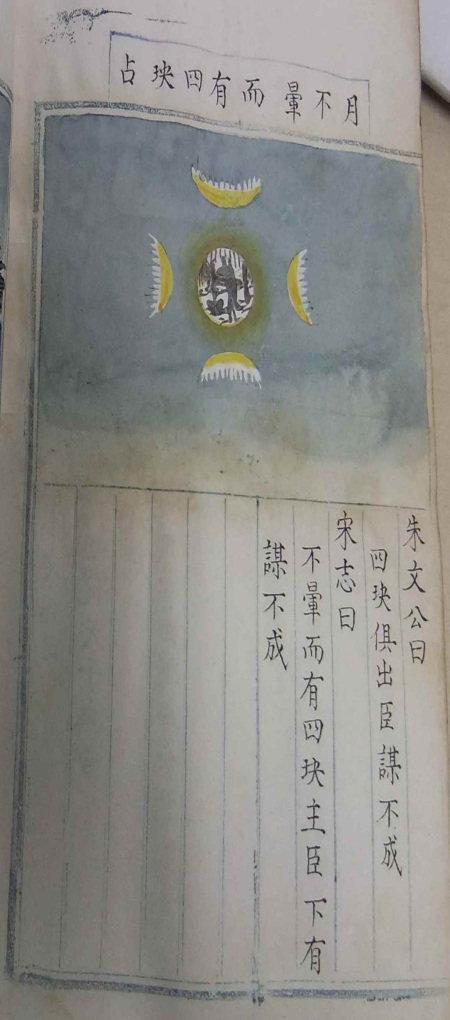 月不暈而有四玦占
朱文公曰
四玦俱出臣謀不成
宋志曰
不暈而有四玦主臣下有
謀不成